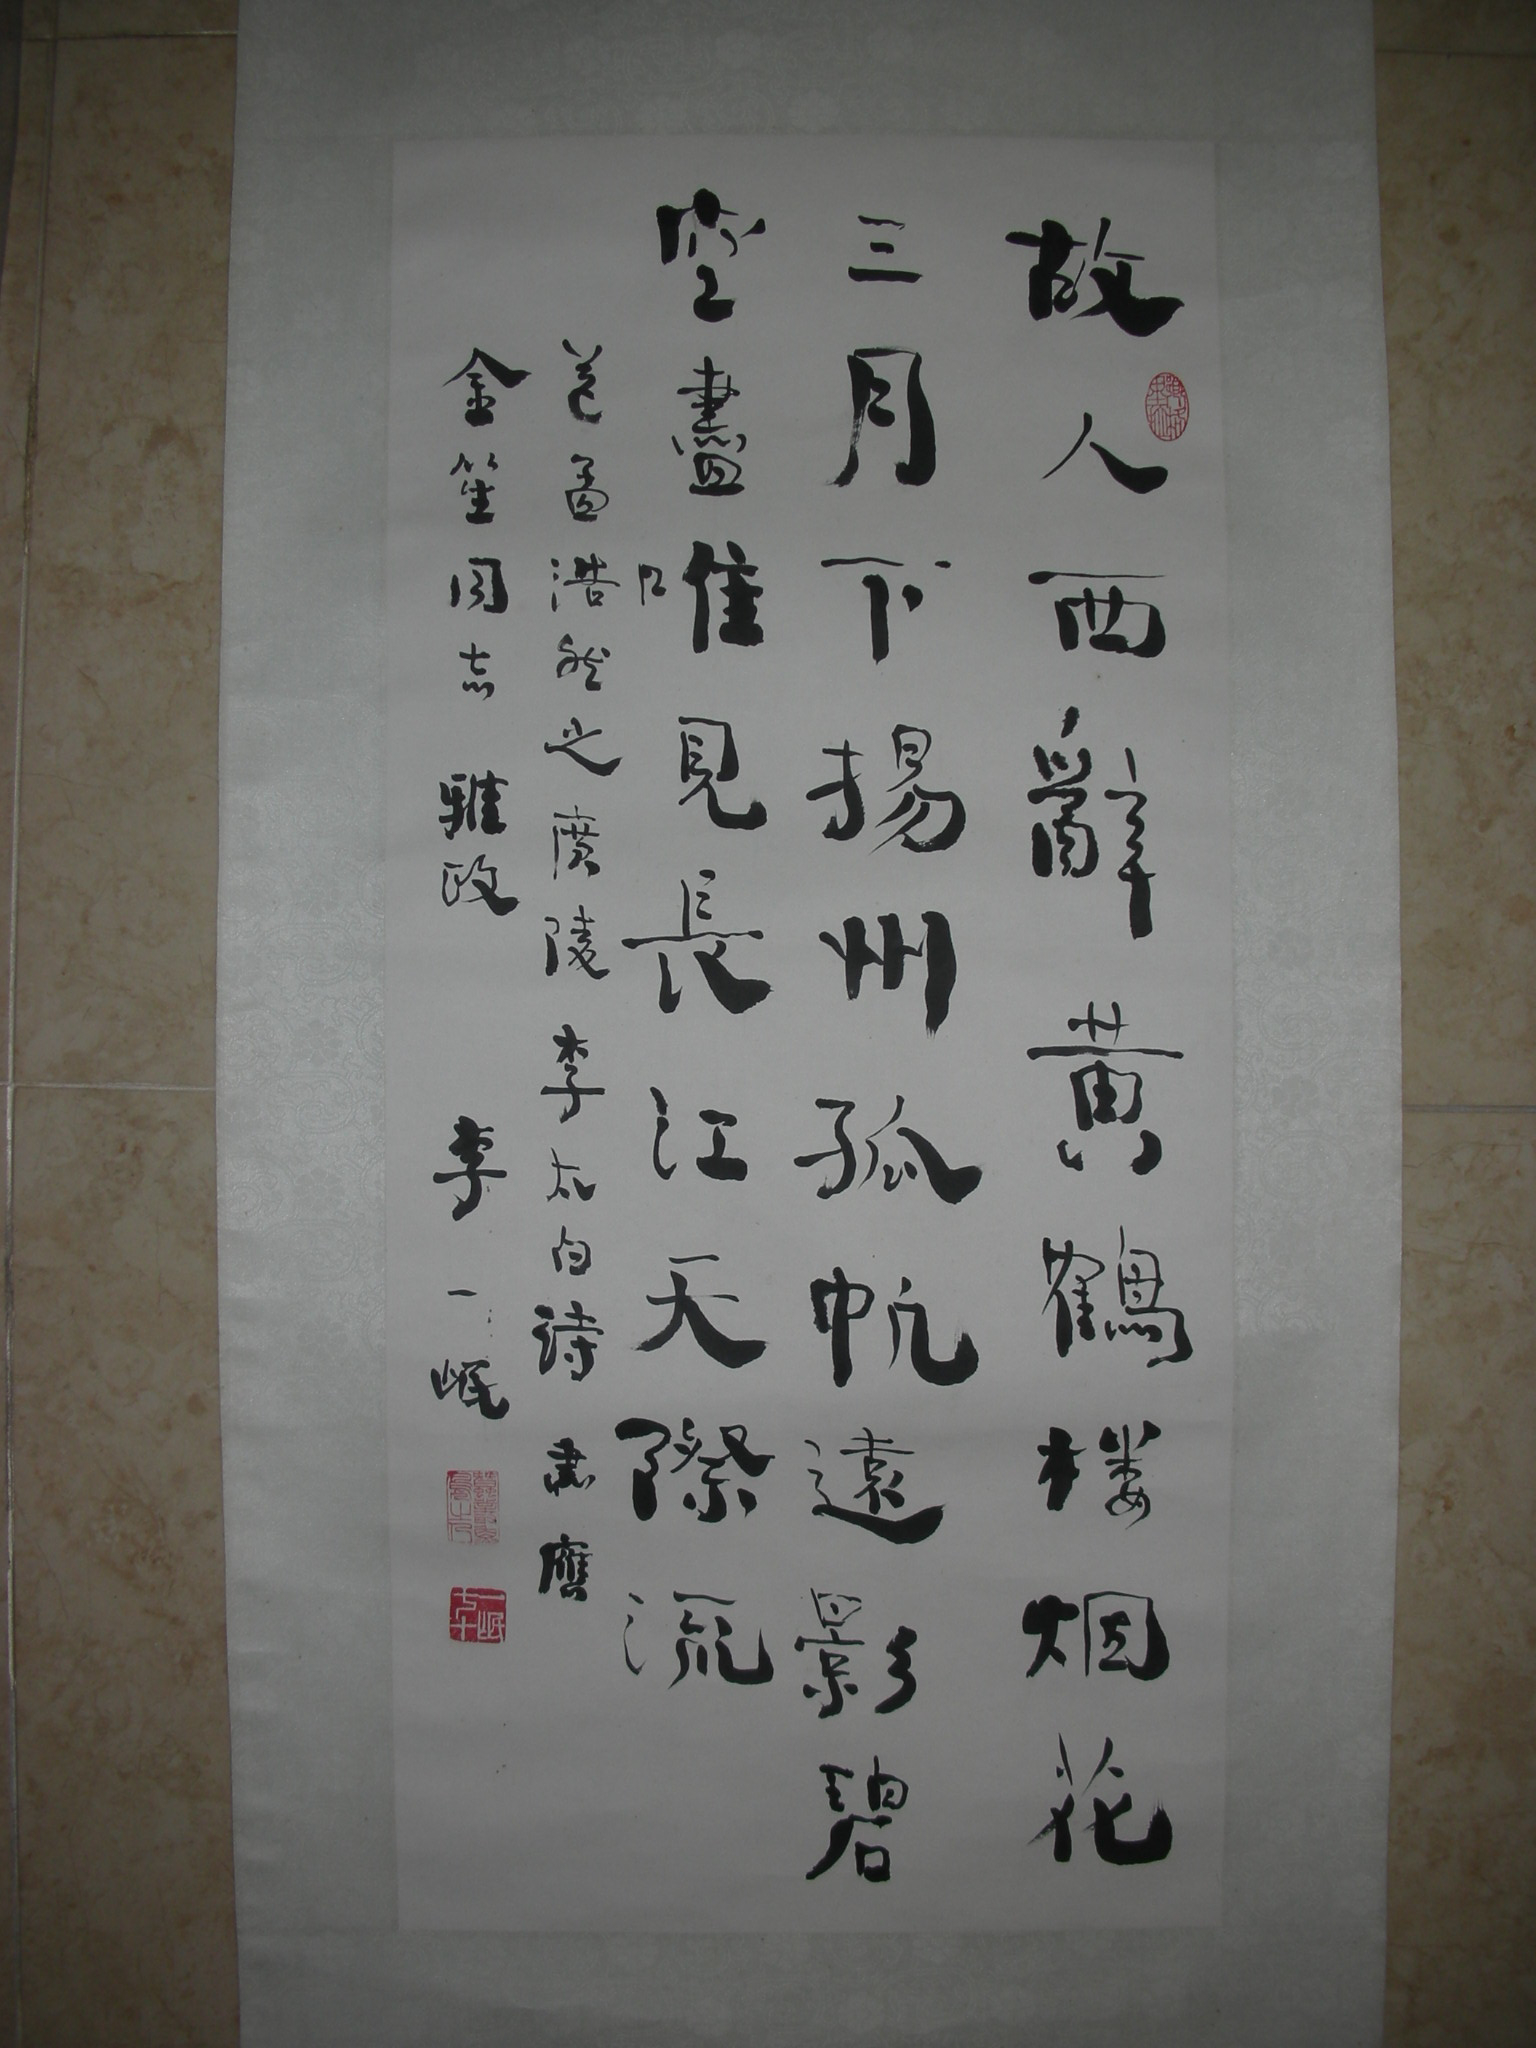 故人西辭黄鶴楼烟花
三月下揚州孤帆遠影碧
空盡唯見長江天際流
送孟浩然之廣陵 李太白詩 書應
金笙同志 雅政 李一氓
一氓七十